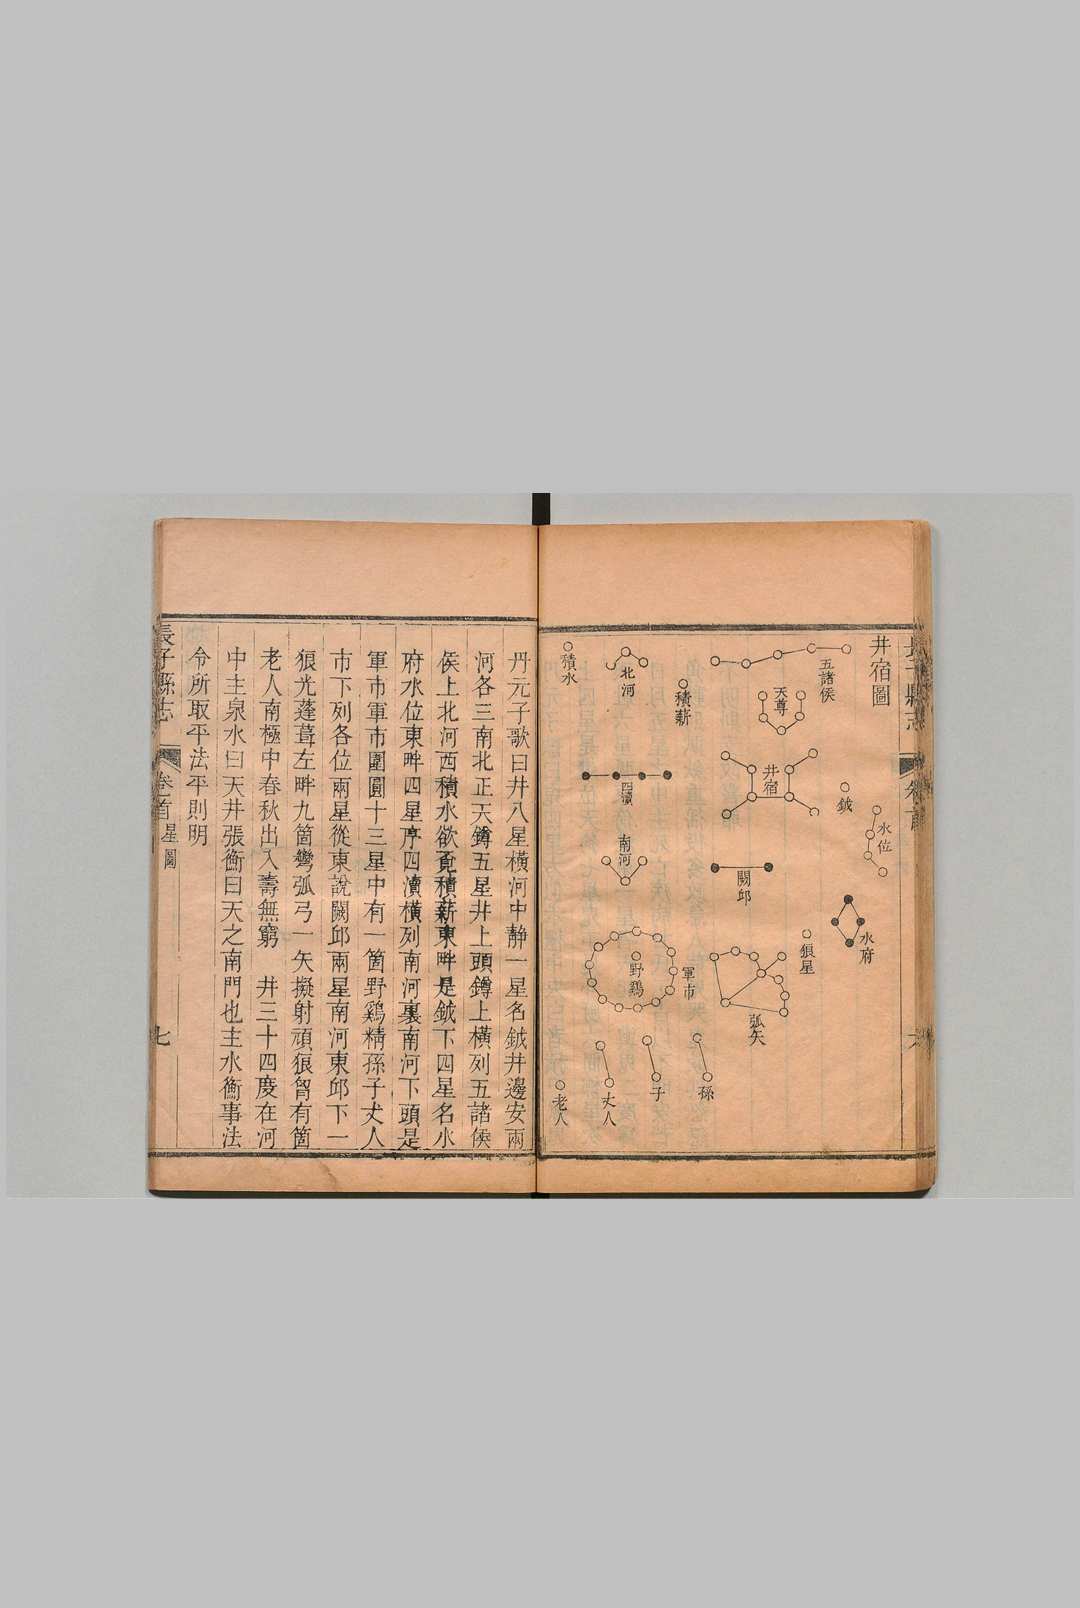 井宿圖
五諸侯
天尊
井宿
鉞
水位
水府
闕邱
狼星
弧矢
孫
子
丈人
老人
軍市
野鷄
南河
四瀆
積薪
北河
積水
長子縣志
卷首
六
丹元子歌曰井八星橫河中靜一星名鉞井邊安兩
河各三南北正天鐏五星井上頭鐏上橫列五諸侯
侯上北河西積水欲覓積薪東畔是鉞下四星名水
府水位東畔四星序四瀆橫列南河裏南河下頭是
軍市軍市圍圓十三星中有一箇野鷄精孫子丈人
市下列各位兩星從東說闕邱兩星南河東邱下一
狼光蓬葺左畔九箇彎弧弓一矢擬射頑狼胷有箇
老人南極中春秋出入壽無窮　井三十四度在河
中主泉水曰天井張衡曰天之南門也主水衡事法
令所取平法平則明
長子縣志
卷首
星圖
七